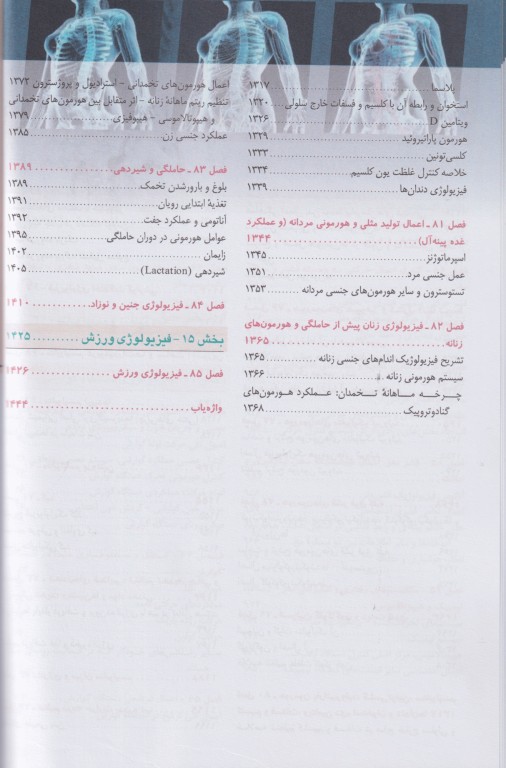 پلاسما ..... ۱۳۱۷
استخوان و رابطه آن با کلسیم و فسفات خارج سلولی ..... ۱۳۲۰
ویتامین D ..... ۱۳۲۶
هورمون پاراتیروئید ..... ۱۳۲۹
کلسی‌تونین ..... ۱۳۳۳
خلاصه کنترل غلظت یون کلسیم ..... ۱۳۳۴
فیزیولوژی دندان‌ها ..... ۱۳۳۹
فصل ۸۱ ـ اعمال تولید مثلی و هورمونی مردانه (و عملکرد
غده پینه‌آل) ..... ۱۳۴۴
اسپرماتوژنز ..... ۱۳۴۵
عمل جنسی مرد ..... ۱۳۵۱
تستوسترون و سایر هورمون‌های جنسی مردانه ..... ۱۳۵۳
فصل ۸۲ ـ فیزیولوژی زنان پیش از حاملگی و هورمون‌های
زنانه ..... ۱۳۶۵
تشریح فیزیولوژیک اندام‌های جنسی زنانه ..... ۱۳۶۵
سیستم هورمونی زنانه ..... ۱۳۶۶
چرخه ماهانهٔ تخمدان: عملکرد هورمون‌های
گنادوتروپیک ..... ۱۳۶۸
اعمال هورمون‌های تخمدانی - استرادیول و پروژسترون ۱۳۷۲
تنظیم ریتم ماهانهٔ زنانه - اثر متقابل بین هورمون‌های تخمدانی
و هیپوتالاموسی - هیپوفیزی ..... ۱۳۷۹
عملکرد جنسی زن ..... ۱۳۸۵
فصل ۸۳ ـ حاملگی و شیردهی ..... ۱۳۸۹
بلوغ و بارورشدن تخمک ..... ۱۳۸۹
تغذیهٔ ابتدایی رویان ..... ۱۳۹۱
آناتومی و عملکرد جفت ..... ۱۳۹۲
عوامل هورمونی در دوران حاملگی ..... ۱۳۹۵
زایمان ..... ۱۴۰۲
شیردهی (Lactation) ..... ۱۴۰۵
فصل ۸۴ ـ فیزیولوژی جنین و نوزاد ..... ۱۴۱۰
بخش ۱۵ - فیزیولوژی ورزش ..... ۱۴۲۵
فصل ۸۵ ـ فیزیولوژی ورزش ..... ۱۴۲۶
واژه‌یاب ..... ۱۴۴۴